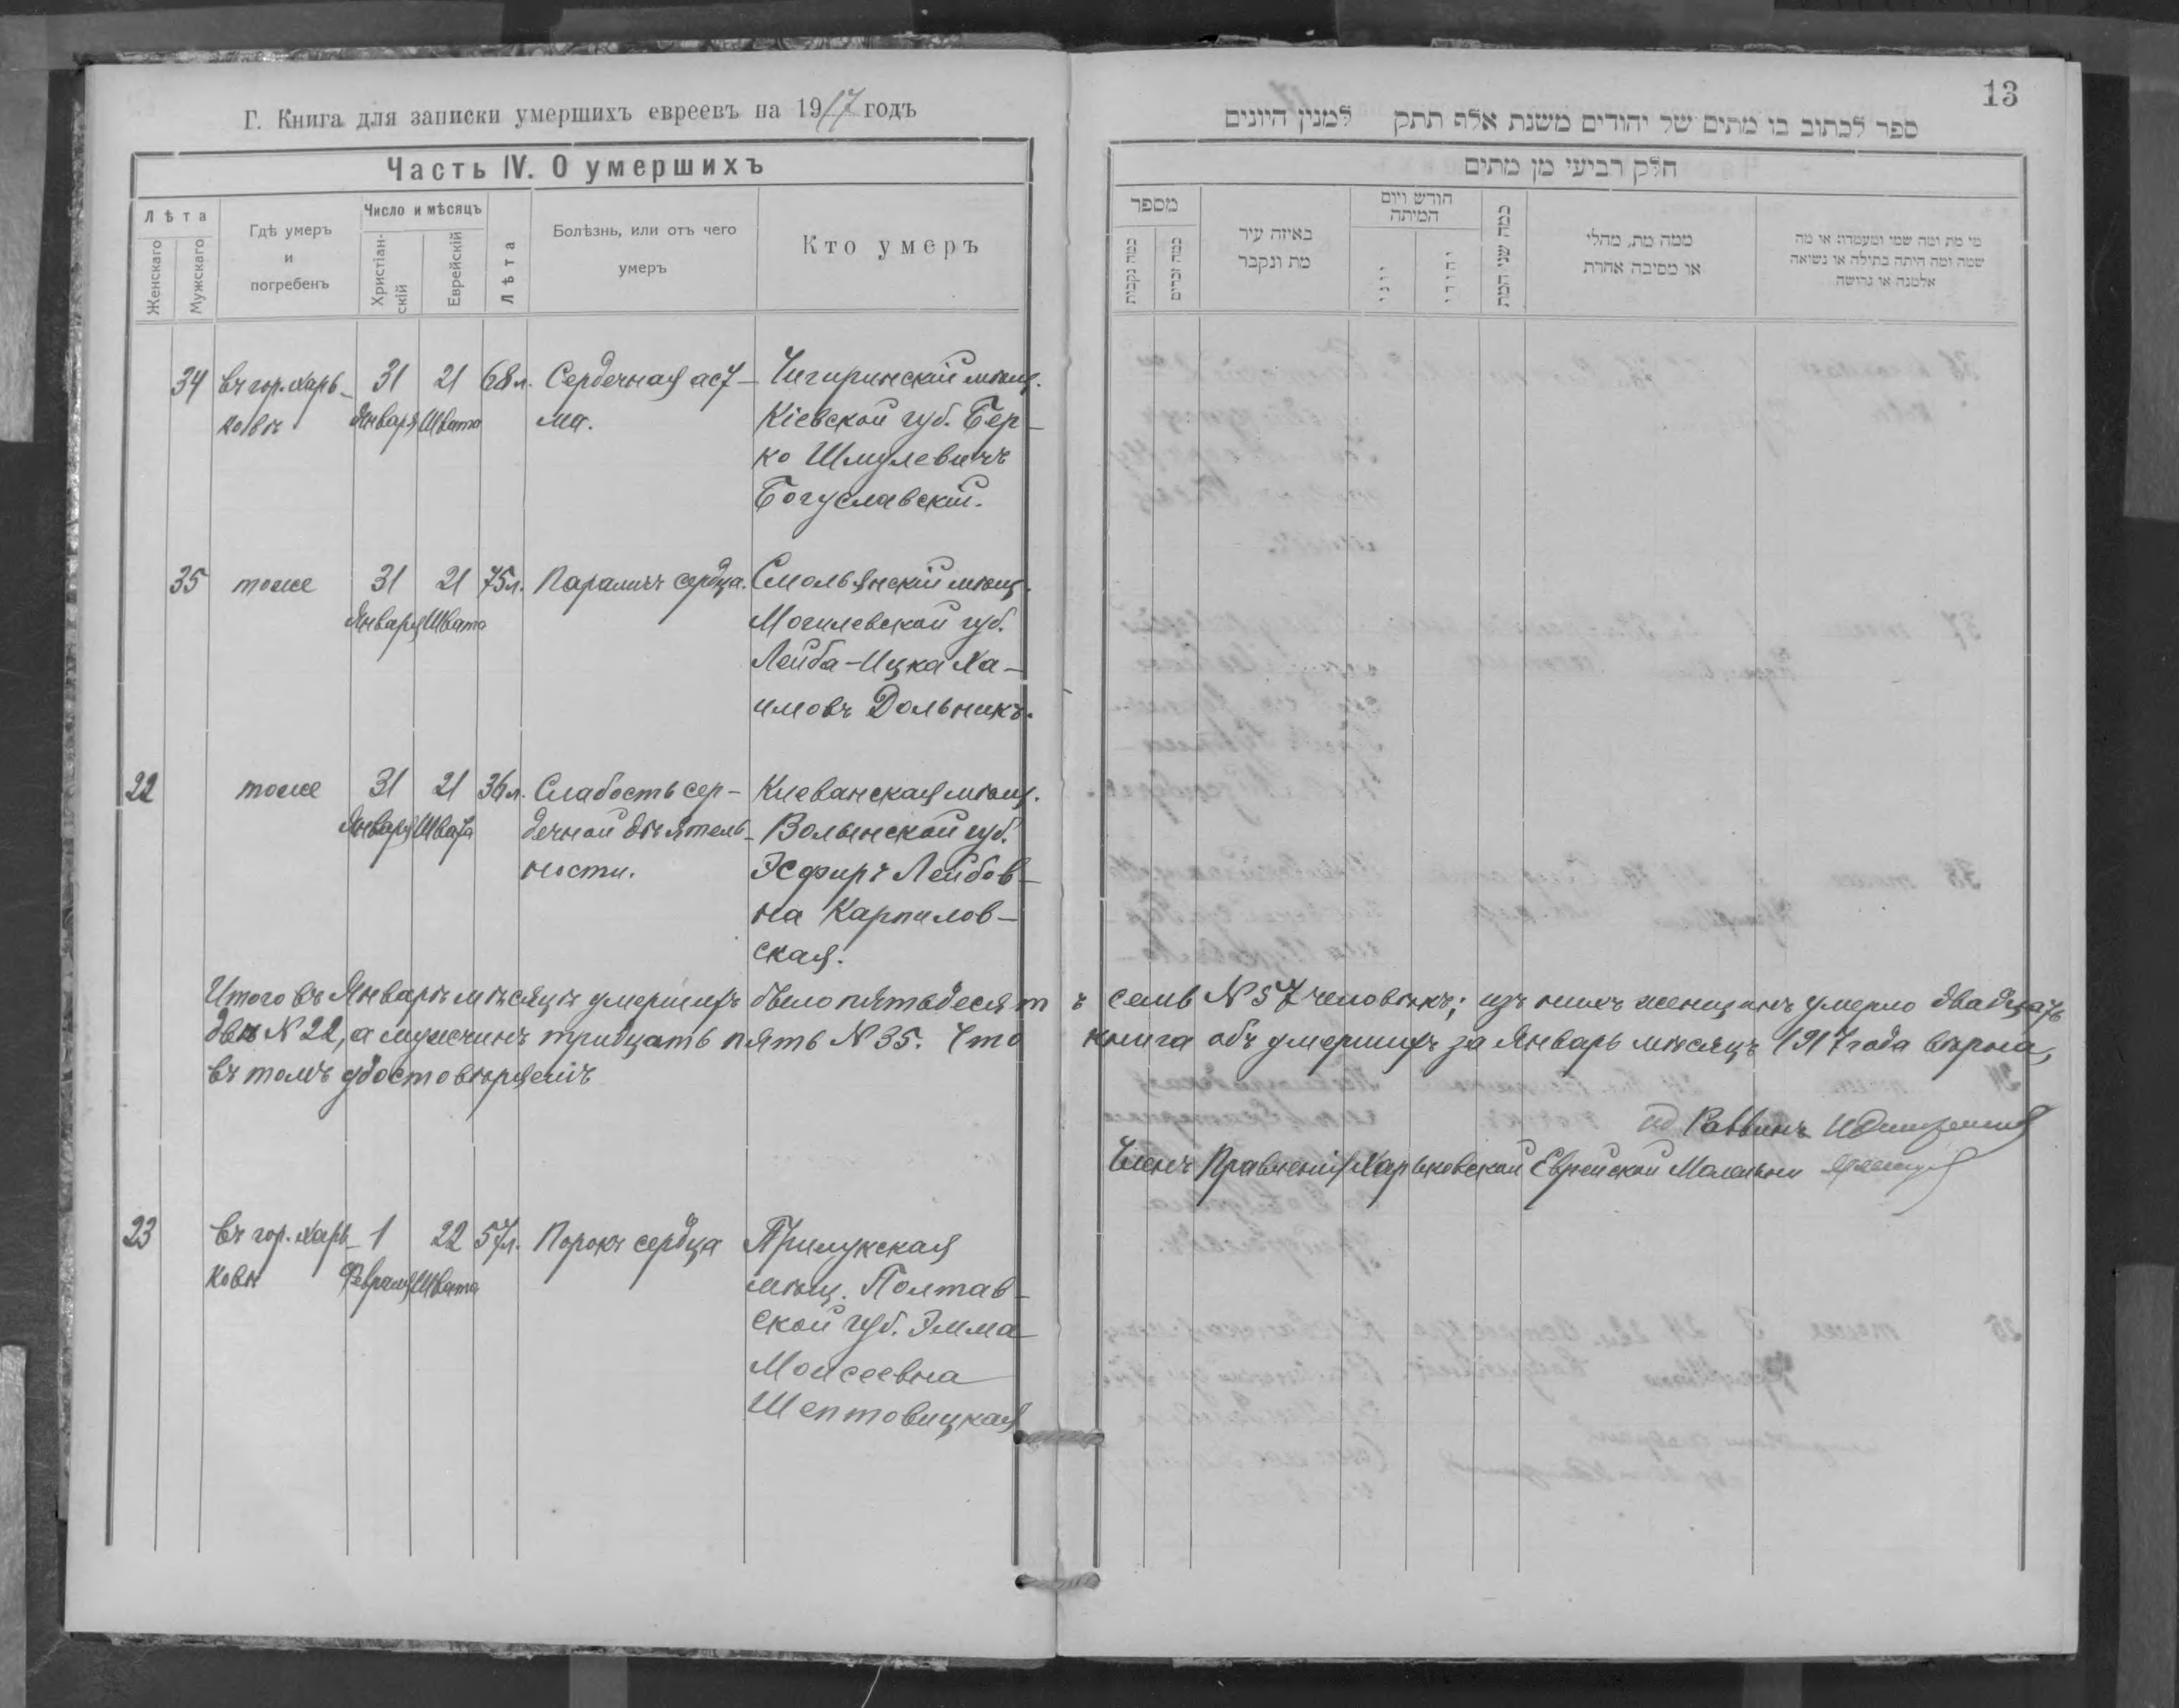 Г. Книга для записки умершихъ евреевъ на 1917 годъ
Часть IV. О умершихъ
Лѣта
Женскаго
Мужскаго
Гдѣ умеръ
и
погребенъ
Число и мѣсяцъ
Христіан-
скій
Еврейскій
Лѣта
Болѣзнь, или отъ чего
умеръ
Кто умеръ
34 въ гор. Харь- 31 21 68 л. Сердечная аст- Чигиринскій мѣщ.
ковѣ Января Швата ма. Кіевской губ. Бер-
ко Шмулевичъ
Богуславскій.
35 тоже 31 21 75 л. Параличъ сердца. Смольянскій мѣщ.
Января Швата Могилевской губ.
Лейба-Ицка Ха-
имовъ Дольникъ.
22 тоже 31 21 36 л. Слабость сер- Клеванская мѣщ.
Января Швата дечной дѣятель- Волынской губ.
ности. Эсфирь Лейбов-
на Карпилов-
ская.
Итого въ Январѣ мѣсяцѣ умершихъ было пятьдесятъ семь № 57 человѣкъ; изъ нихъ женщинъ умерло двадцать
двѣ № 22, а мужчинъ тридцать пять № 35. Что книга объ умершихъ за Январь мѣсяцъ 1917 года вѣрна,
въ томъ удостовѣряемъ
ид Раввинъ
Членъ Правленія Харьковской Еврейской Молельни
23 въ гор. Харь- 1 22 57 л. Порокъ сердца Прилукская
ковѣ Февраля Швата мѣщ. Полтав-
ской губ. Эмма
Моисеевна
Шептовицкая
13
ספר לכתוב בו מתים של יהודים משנת אלף תתק למנין היונים
חלק רביעי מן מתים
מספר
כמה נקבות
כמה זכרים
באיזה עיר
מת ונקבר
חודש ויום
המיתה
יוני
יהודי
כמה שני המת
ממה מת, מהלי
או מסיבה אחרת
מי מת ומה שמו ומעמדו או מה
שמה ומה היתה בתולה או נשואה
אלמנה או גרושה